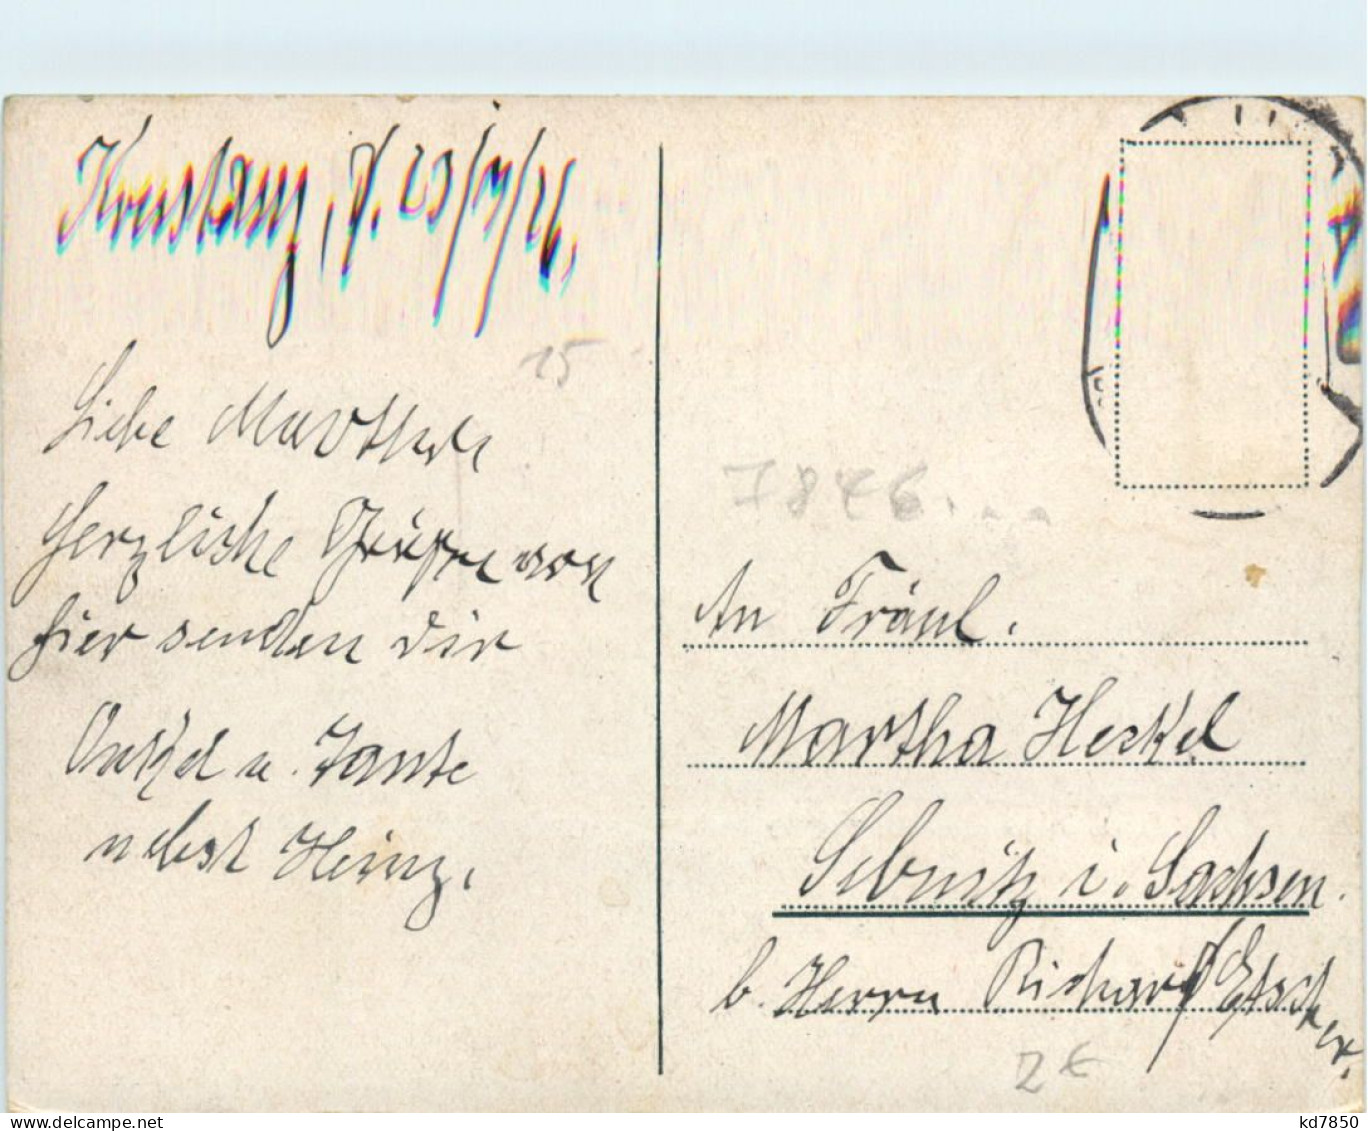 Konstanz, d. 20/7/21.
15
Liebe Martha
Herzliche Grüße von
hier senden dir
Onkel u. Tante
nebst Heinz.
7846...
An Fräul.
Martha Heckel
Sebnitz i. Sachsen.
b. Herrn Richard
2€
kd7850